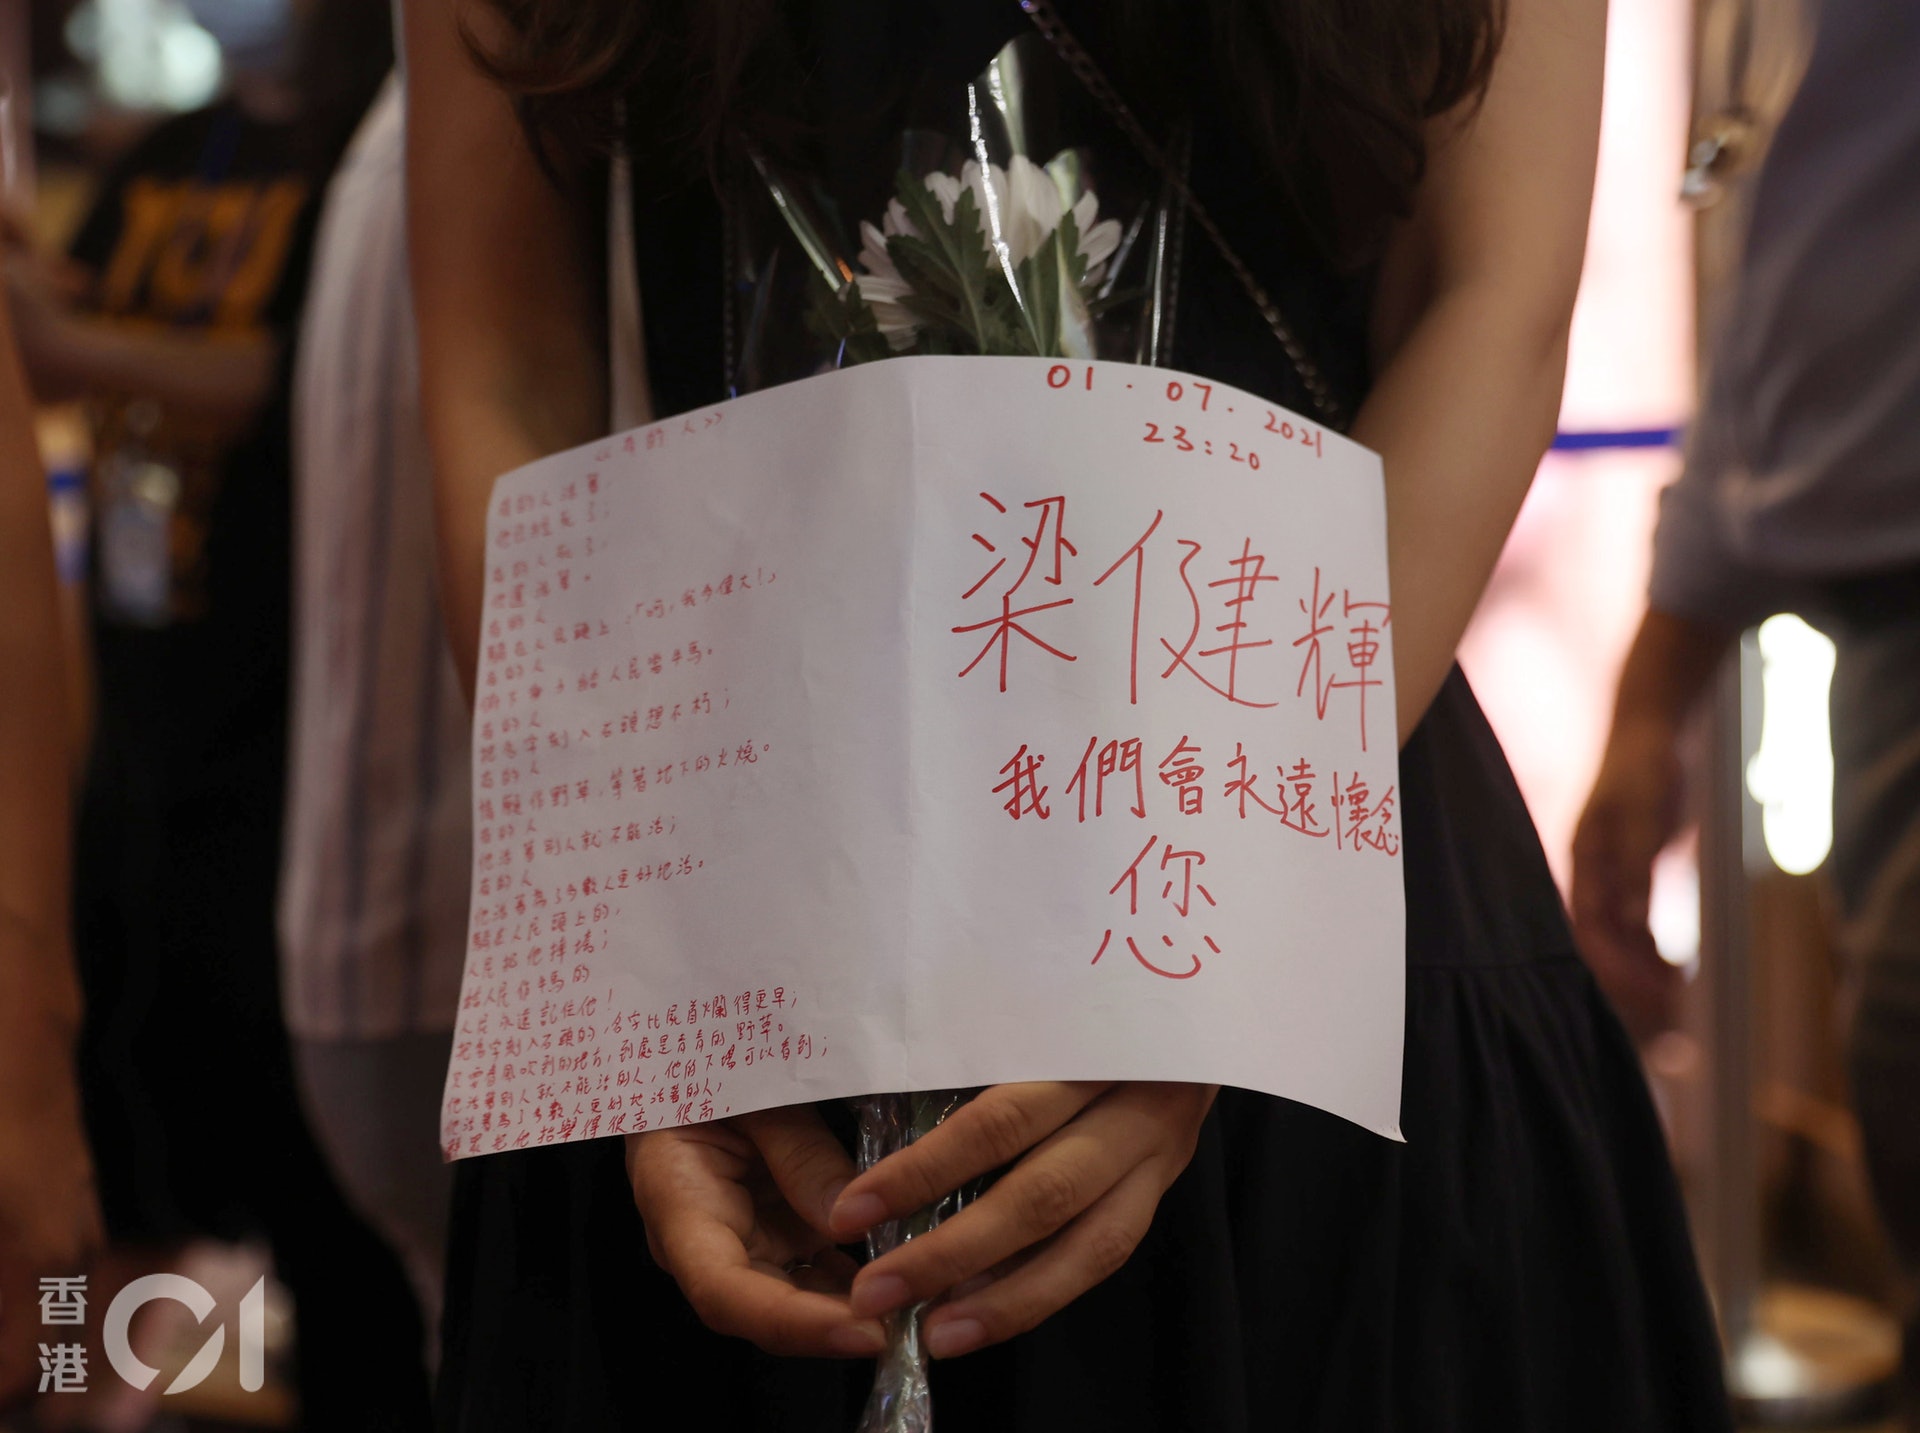 《有的人》
有的人活著，
他已經死了；
有的人死了，
他還活著。
有的人
騎在人民頭上：「呵，我多偉大！」
有的人
俯下身子給人民當牛馬。
有的人
把名字刻入石頭想不朽；
有的人
情願作野草，等著地下的火燒。
有的人
他活著別人就不能活；
有的人
他活著為了多數人更好地活。
騎在人民頭上的，
人民把他摔壞；
給人民作牛馬的
人民永遠記住他！
把名字刻入石頭的，名字比屍首爛得更早；
只要春風吹到的地方，到處是青青的野草。
他活著別人就不能活的人，他的下場可以看到；
他活著為了多數人更好地活著的人，
群眾把他抬舉得很高，很高。
01.07.2021
23:20
梁健輝
我們會永遠懷念
您
香港01